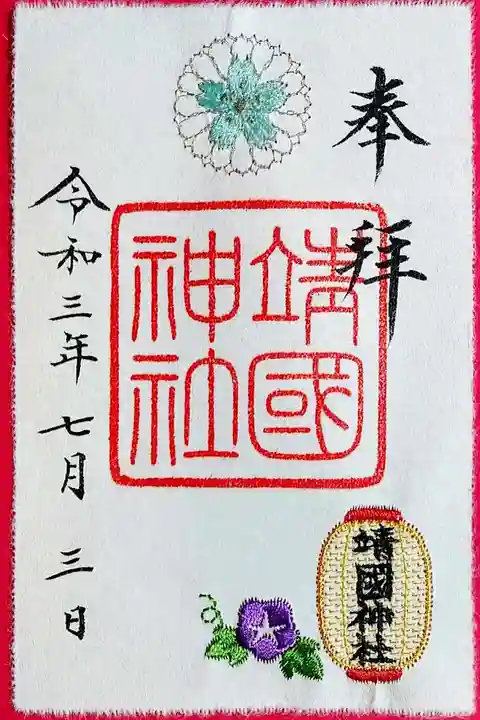 奉拜
靖國
神社
令和三年七月三日
靖國神社